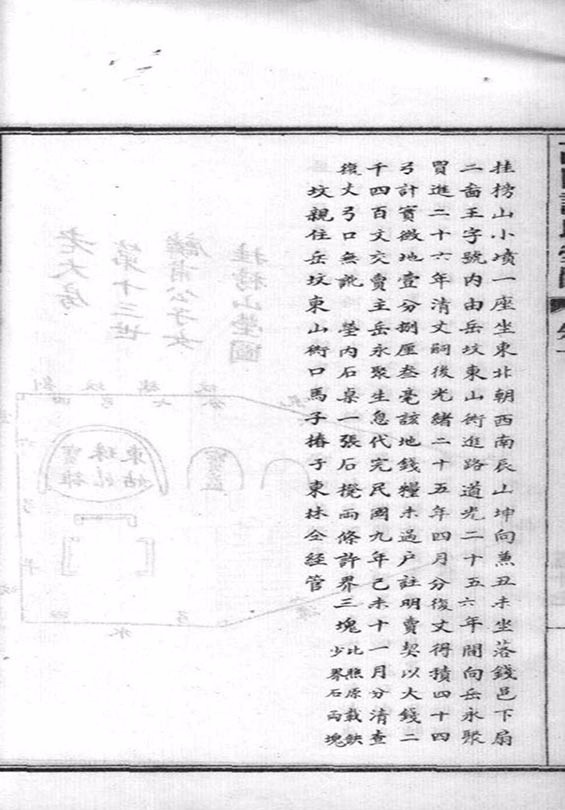 挂榜山小墳一座坐東北朝西南辰山坤向兼丑未坐落錢邑下扇
二畨王字號內由岳坟東山衖進路道光二十五六年間向岳永聚
買進二十六年清丈嗣後光緒二十五年四月分復丈得積四十四
弓計實徵地壹分捌厘叁毫該地錢糧未過戶註明賣契以大錢二
千四百文交賣主岳永聚生息代完民國九年己未十一月分清查
復丈弓口無訛 塋內石桌一張石櫈兩條許界三塊比照原載缺
少界石兩塊
坟親住岳坟東山衖口馬子椿子東林仝經管
挂榜山塋圖
公子女
第十三世
老大房